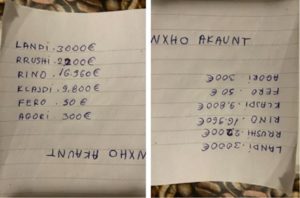 LANDI. 3000€
RRUSHI. 2200€
RINO. 16.960€
KLAJDI. 9.800€
FERO. 50€
AGORI 300€
NXHO AKAUNT
NXHO AKAUNT
AGORI 300€
FERO. 50€
KLAJDI. 9.800€
RINO. 16.960€
RRUSHI. 2200€
LANDI. 3000€